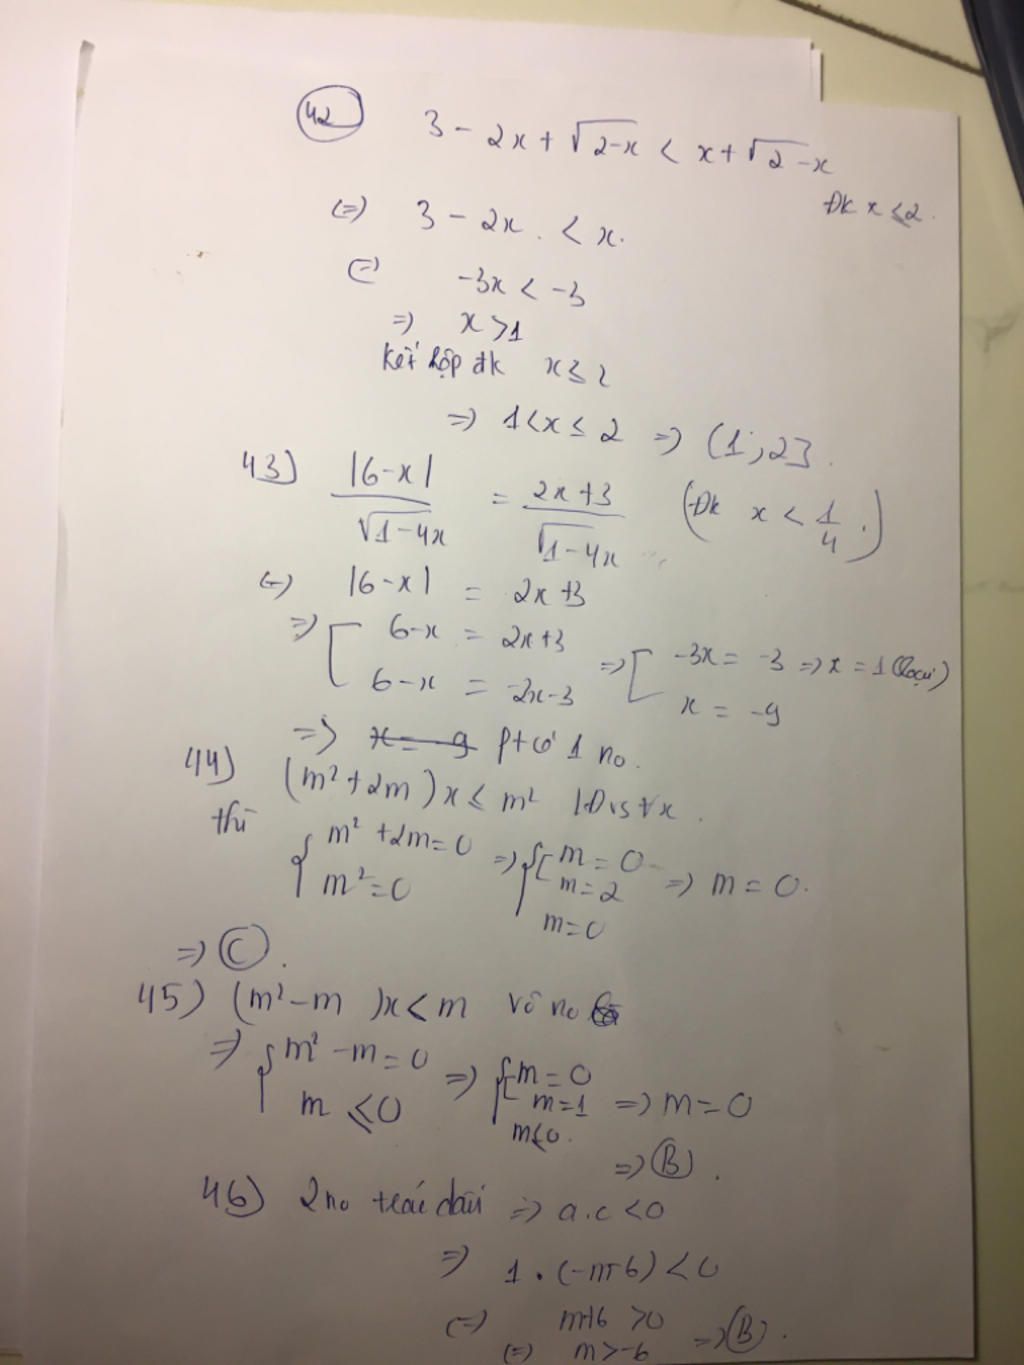 42 3 - 2x + √2-x < x + √2 - x
Đk x ≤ 2.
(=) 3 - 2x . < x.
(=) -3x < -3
=) x > 1
kết hợp đk x ≤ 2
=) 1 < x ≤ 2 =) (1 ; 2].
43) |6-x| / √1-4x = 2x+3 / √1-4x (Đk x < 1/4 .)
(=) |6-x| = 2x+3
=) [ 6-x = 2x+3 =) [ -3x = -3 =) x = 1 (loại)
6-x = -2x-3 x = -9
=) pt có 1 no.
44) (m² + 2m) x ≤ m² ∀x.
thì { m² + 2m = 0 =) { [ m = 0 =) m = 0.
m² = 0 m = 2
m = 0
=) C.
45) (m² - m )x < m vô no
=) { m² - m = 0 =) { [ m = 0
m ≤ 0 m = 1 =) m = 0
m ≤ 0.
=) B.
46) 2 no trái dấu =) a.c < 0
=) 1 . (-m-6) < 0
(=) m+6 > 0
(=) m > -6 =) B.